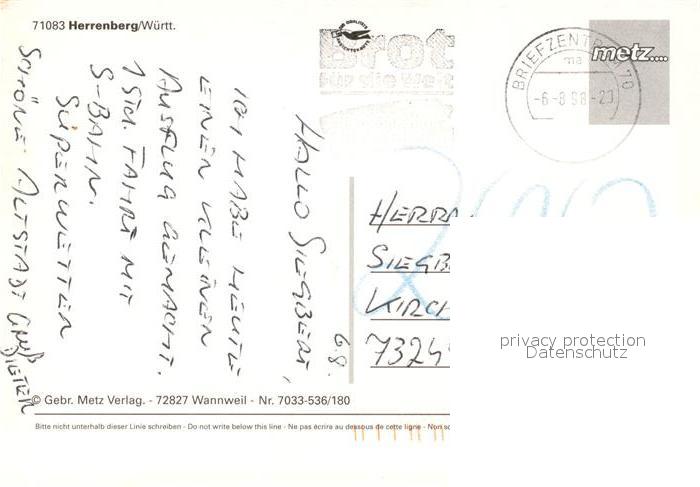 71083 Herrenberg/Württ.
Brot
für die Welt
BRIEFZENTRUM 70
ma
-6-8.98-20
metz....
HALLO SIEGBERT,
6.8.
ICH HABE HEUTE
EINEN KLEINEN
AUSFLUG GEMACHT.
1 STD. FAHRT MIT
S-BAHN.
SUPERWETTER
SCHÖNE ALTSTADT GRUß
DIETER
HERRN
SIEGB
KIRCH
7324
privacy protection
Datenschutz
© Gebr. Metz Verlag. - 72827 Wannweil - Nr. 7033-536/180
Bitte nicht unterhalb dieser Linie schreiben - Do not write below this line - Ne pas écrire au dessous de cette ligne - Non sc